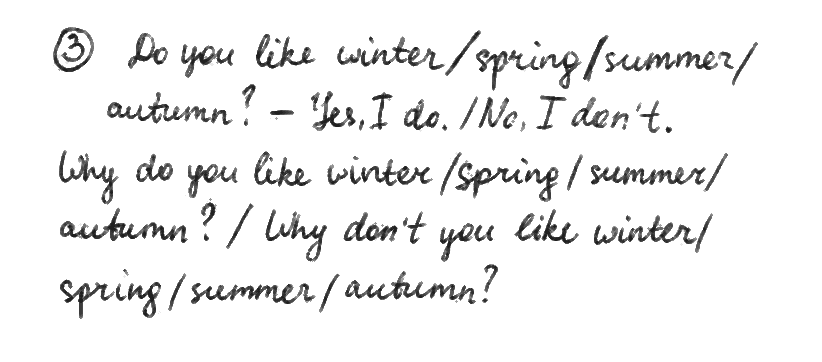 ③ Do you like winter/spring/summer/
autumn? – Yes, I do. / No, I don't.
Why do you like winter/spring/summer/
autumn? / Why don't you like winter/
spring/summer/autumn?